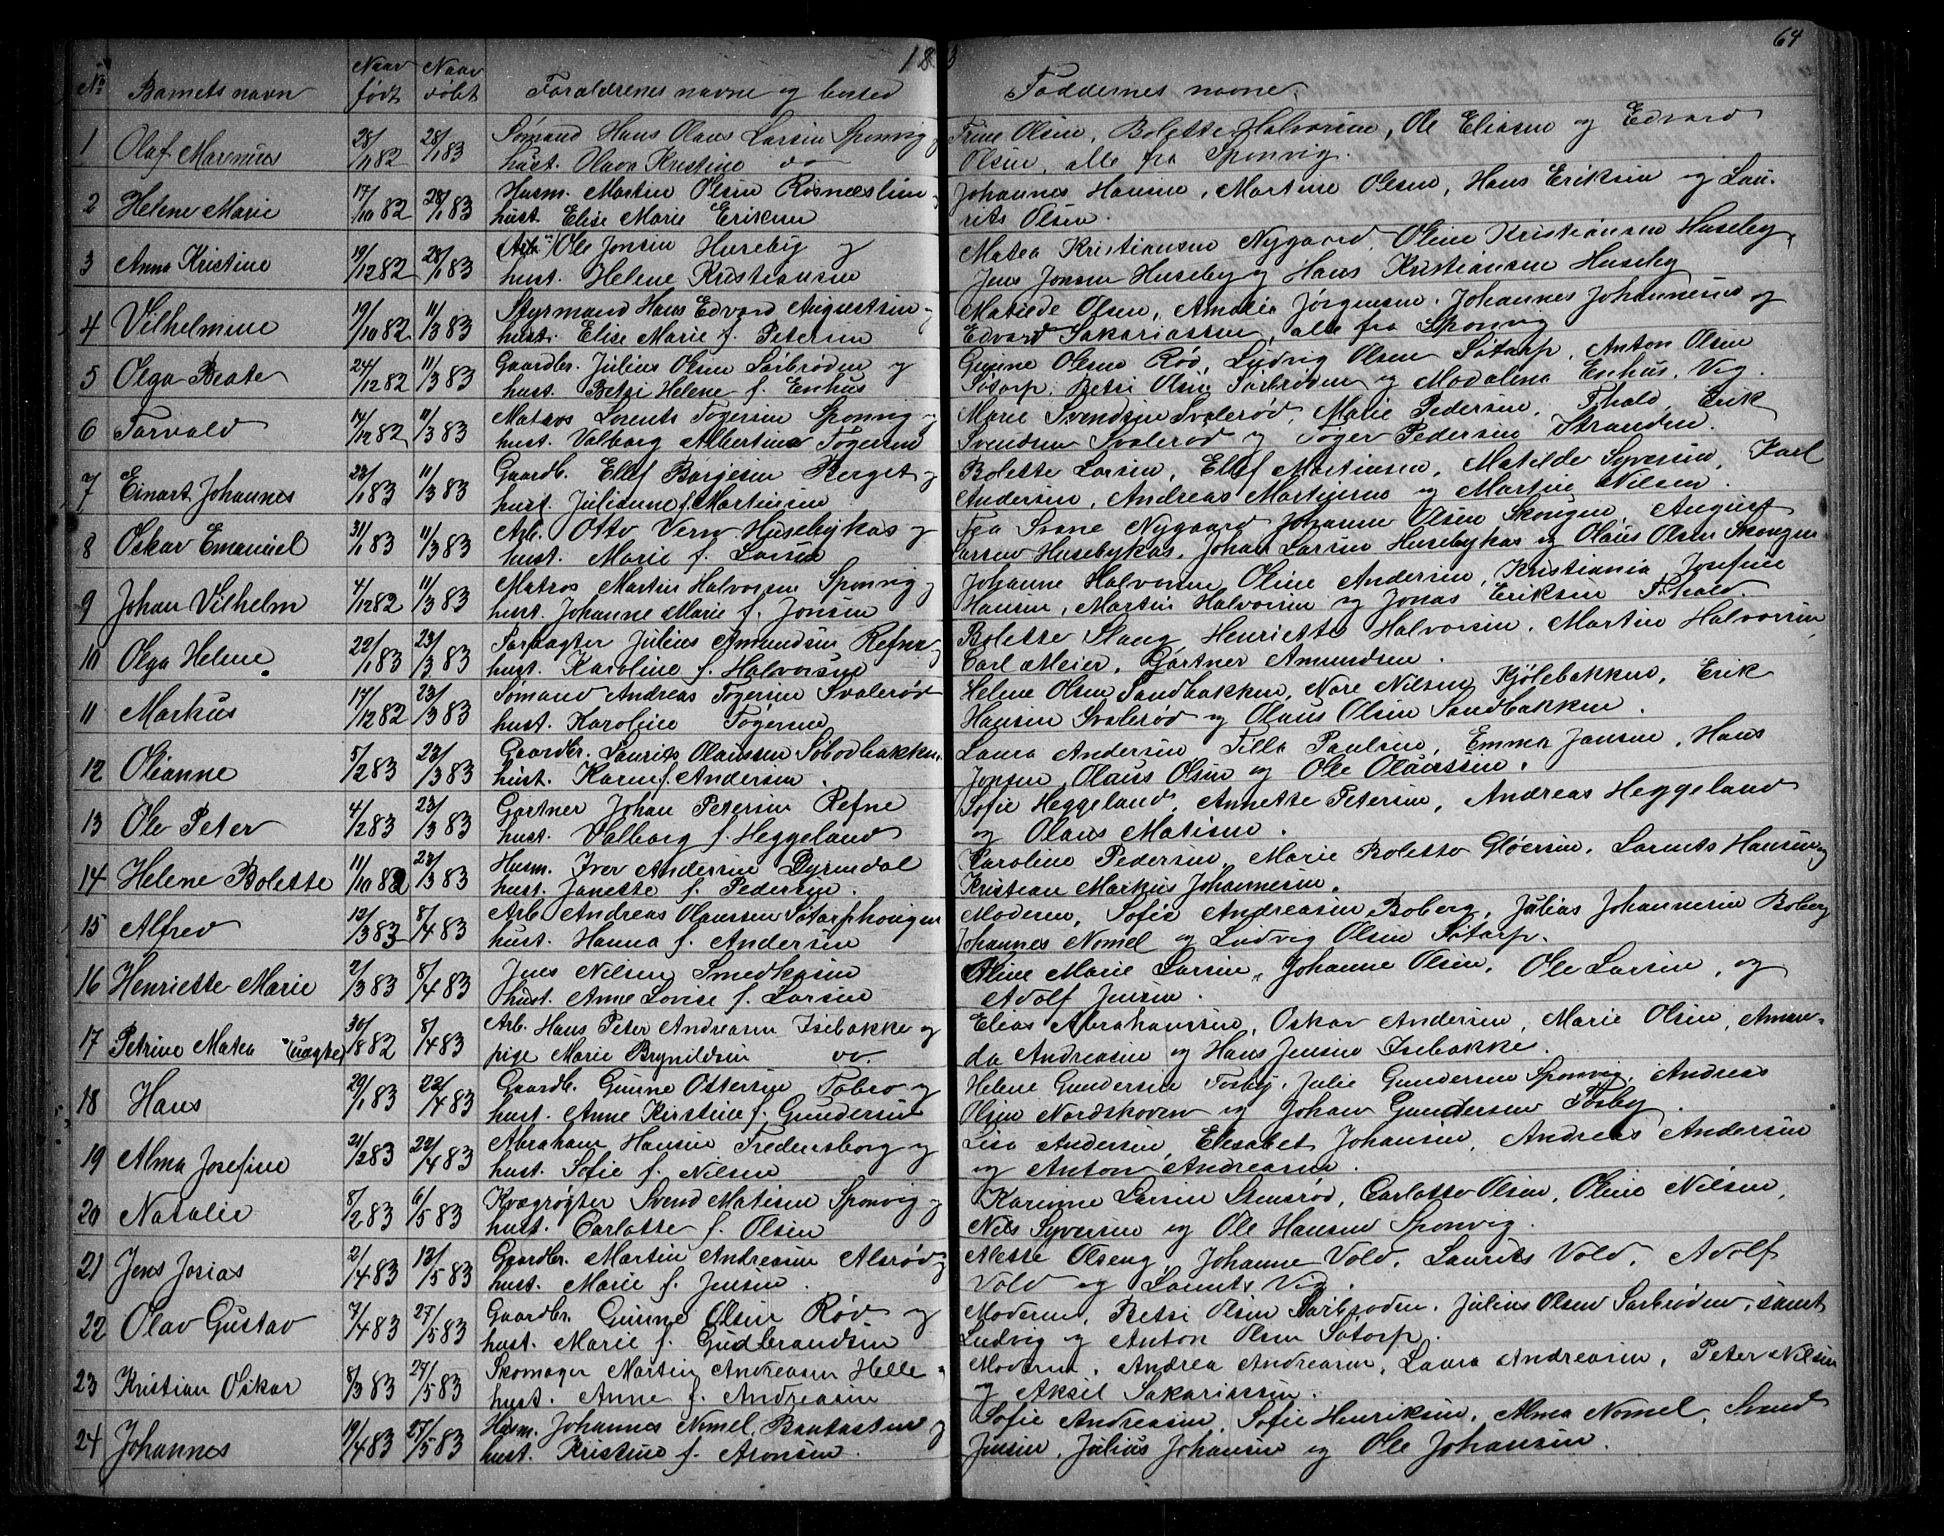 1883
64
No Barnets navn Naar født Naar døbt Forældrenes navne og bosted Faddernes navne.
1 Olaf Marenius 28/11 82 28/1 83 Sømand Hans Olaus Larsen Sponvig og Trine Olsen, Bolette Halvorsen, Ole Eliasen og Edvard
hust. Olava Kristine do Olsen, alle fra Sponvig.
2 Helene Marie 17/10 82 28/1 83 Husm. Martin Olsen Røsneslien Johannes Hansen, Martine Olsen, Hans Eriksen og Lau-
hust. Elise Marie Eriksen rits Olsen.
3 Anna Kristine 19/12 82 28/1 83 Arb. Ole Jonsen Huseby og Matea Kristiansen Nygaard, Oline Kristiansen Huseby,
hust. Helene Kristiansen Jens Jonsen Huseby og Hans Kristiansen Huseby
4 Vilhelmine 19/10 82 11/3 83 Styrmand Hans Edvard Augustsen og Matilde Olsen, Amalie Jørgensen, Johannes Johannesen og
hust. Elise Marie f. Petersen Edvard Sakariassen, alle fra Sponvig
5 Olga Beate 24/12 82 11/3 83 Gaardbr. Julius Olsen Sørbrøden og Gunine Olsen Rød, Ludvig Olsen Søtorp, Anton Olsen
hust. Betsi Helene f. Enhus Søtorp, Betsi Olsen Sørbrøden og Madalena Enhus, Vig.
6 Torvald 14/12 82 11/3 83 Matros Lorents Tøgersen Sponvig og Marie Svendsen Svalerød, Marie Pedersen, Fhald, Erik
hust. Valborg Albertine Tøgersen Svendsen Svalerød og Tøger Pedersen Stranden.
7 Einart Johannes 22/1 83 11/3 83 Gaardb. Ellef Børgesen Berget og Bolette Larsen, Ellef Martinsen, Matilde Syversen, Karl
hust. Julianne f. Martinsen Andersen, Andreas Martinsen og Martin Nilsen.
8 Oskar Emanuel 31/1 83 11/3 83 Arb. Otto Vern Husebykas og Fra Svane Nygaard Johanne Olsen Skougen, August
hust. Marie f. Larsen Larsen Husebykas, Johan Larsen Husebykas og Olaus Olsen Skougen
9 Johan Vilhelm 4/12 82 11/3 83 Matros Martin Halvorsen Sponvig og Johanne Halvorsen, Oline Andersen, Kristiania, Josefine
hust. Johanne Marie f. Jonsen Hansen, Martin Halvorsen og Jonas Eriksen Fhald.
10 Olga Helene 22/1 83 23/3 83 Forpagter Julius Amundsen Refne og Bolette Slang, Henriette Halvorsen, Martin Halvorsen,
hust. Karoline f. Halvorsen Carl Meier, Gartner Amundsen.
11 Markus 17/12 82 23/3 83 Sømand Andreas Tøgersen Svalerød Helene Olsen Sandbakken, Nore Nilsen Kjølebakken, Erik
hust. Karoline Tøgersen Hansen Svalerød og Olaus Olsen Sandbakken.
12 Olianne 5/2 83 23/3 83 Gaardbr. Laurits Olaussen Sobodbakken Laura Andersen Tilla Paulsen, Emma Jansen, Hans
hust. Karen f. Andersen. Jensen, Olaus Olsen og Ole Olaussen.
13 Ole Peter 4/2 83 23/3 83 Gartner Johan Petersen Refne Sofie Heggeland, Annette Petersen, Andreas Heggeland
hust. Valborg f. Heggeland og Olaus Matisen.
14 Helene Bolette 11/10 82 23/3 83 Husm. Iver Andersen Dyrendal Karoline Pedersen, Marie Bolette Gløersen, Lornts Hansen og
hust. Janette f. Pedersen. Kristian Markus Johannesen.
15 Alfred 12/3 83 8/4 83 Arb. Andreas Olaussen Søtorphougen Moderen, Sofie Andreasen Boberg, Julius Johannesen Boberg
hust. Hanna f. Andersen Johannes Nomel og Ludvig Olsen Søtorp.
16 Henriette Marie 2/3 83 8/4 83 Jens Nilsen Smedkasen Oline Marie Larsen, Johanne Olsen, Ole Larsen, og
hust. Anne Lovise f. Larsen Adolf Jensen.
17 Petrine Matea (uægte) 30/8 82 8/4 83 Arb. Hans Peter Andreasen Isebakke og Elias Abrahamsen, Oskar Andersen, Marie Olsen, Aman-
pige Marie Brynildsen do da Andreasen og Hans Jensen Isebakke.
18 Hans 29/1 83 22/4 83 Gaardb. Gunne Ottersen Tobro og Helene Gundersen Torsby, Julie Gundersen Sponvig, Andreas
hust. Anne Kirstine f. Gundersen Olsen Nordskoven og Johan Gundersen Torsby.
19 Alma Josefine 21/2 83 22/4 83 Abraham Hansen Fredensborg og Lisa Andersen, Elisabet Johansen, Andreas Andersen
hust. Sofie f. Nilsen og Anton Andreasen.
20 Natalie 8/2 83 6/5 83 Kvægrøgter Svend Matisen Sponvig og Karinne Larsen Stensrød, Carlotte Olsen, Oline Nilsen,
hust. Carlotte f. Olsen Nils Syversen og Ole Hansen Sponvig.
21 Jens Josias 2/4 83 12/5 83 Gaardbr. Martin Andreasen Alsrød og Alette Olseng, Johanne Vold, Laurits Vold, Adolf
hust. Marie f. Jensen. Vold og Lornts Vig.
22 Olav Gustav 7/4 83 27/5 83 Gaardbr. Gunne Olsen Rød og Moderen, Betsi Olsen Sørbrøden, Julius Olsen Sørbrøden, samt
hust. Marie f. Gudbrandsen Ludvig og Anton Olsen Søtorp.
23 Kristian Oskar 8/3 83 27/5 83 Skomager Martin Andreasen Helle og Moderen, Andrea Andreasen, Laura Andreasen, Peter Nilsen
hust. Anne f. Andreasen og Aksel Sakariassen.
24 Johannes 19/4 83 27/5 83 Husm. Johannes Nomel, Bautasten og Sofie Andreasen, Sofie Henriksen, Alma Nomel, Svend
hust. Kristine f. Aronsen. Jensen, Julius Johansen og Ole Johansen.